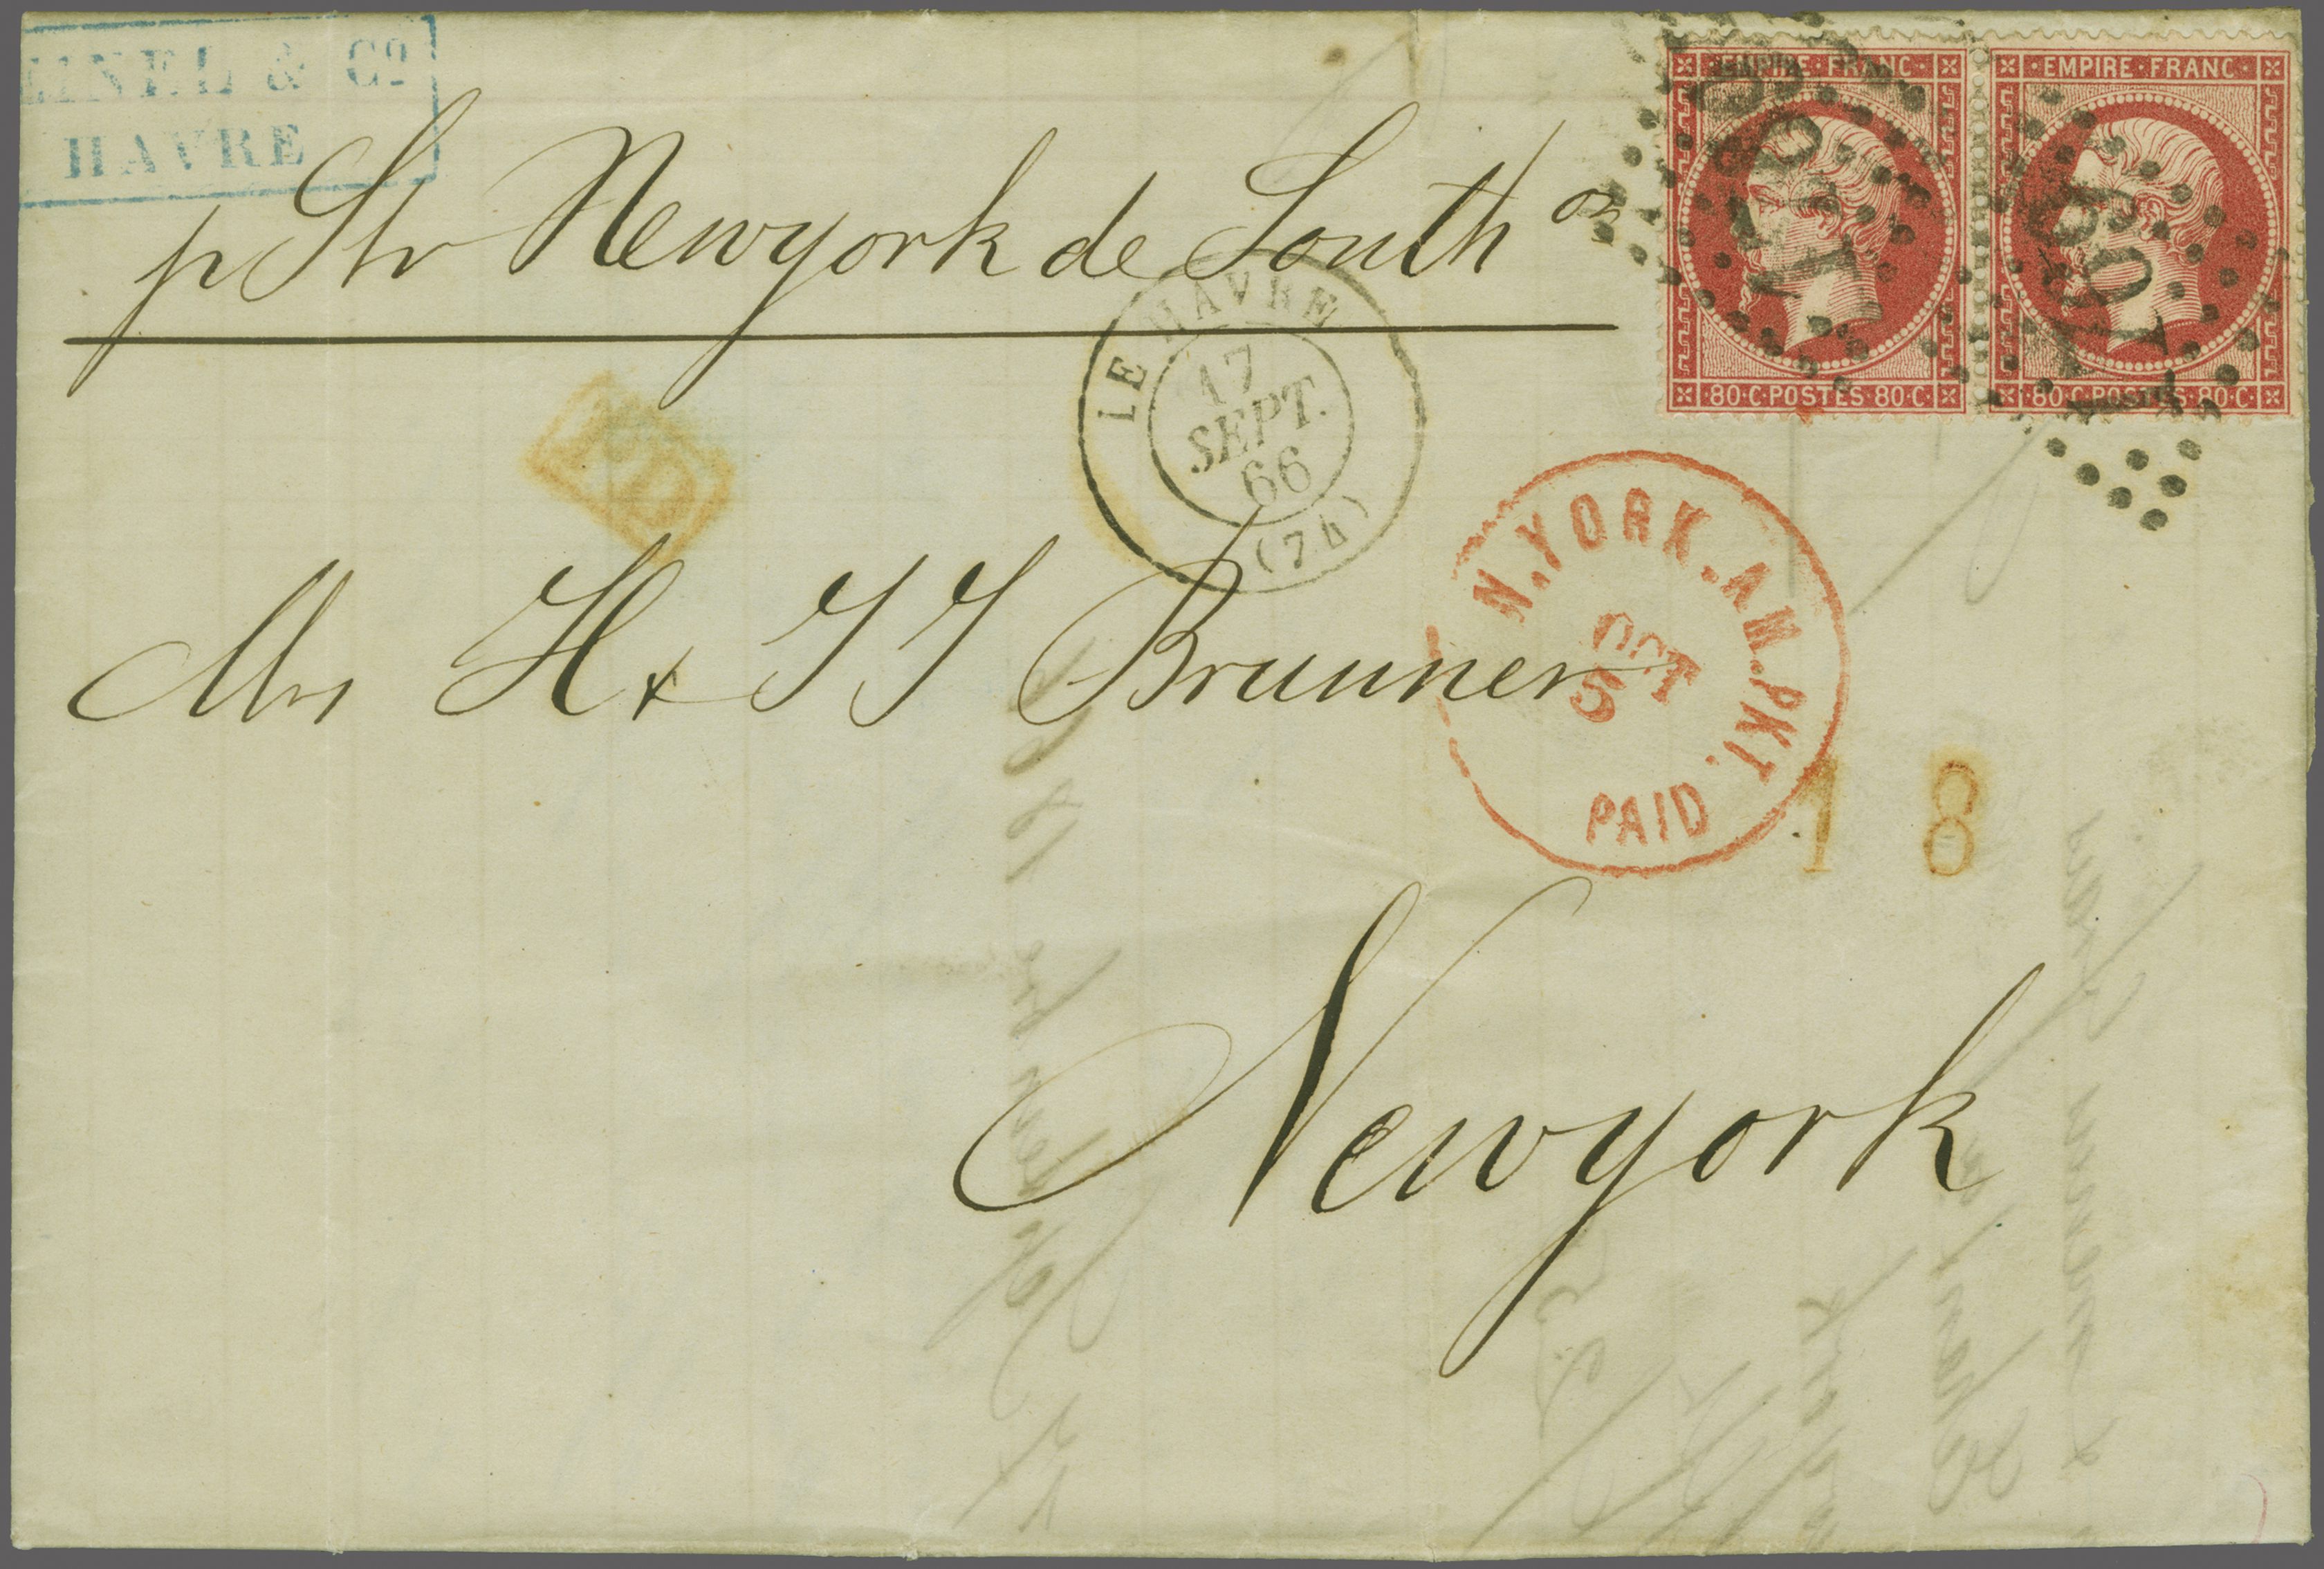 & Co
HAVRE
EMPIRE · FRANC ·
· EMPIRE · FRANC ·
p Str Newyork de South on
· 80 · C · POSTES 80 · C ·
· 80 · C · POSTES 80 · C ·
1769
1769
LE HAVRE
17
SEPT.
66
(74)
PD
N. YORK. AM. PKT.
OCT
5
PAID
Mrs H & JJ Brunner
18
Newyork